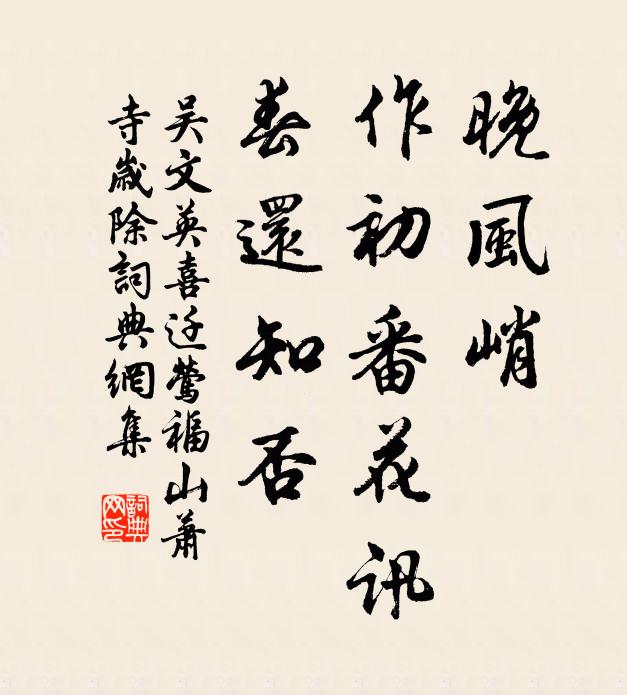 晚風峭
作初番花訊
春還知否
吴文英喜迁鶯福山萧
寺歲除詞典網集
詞典網印